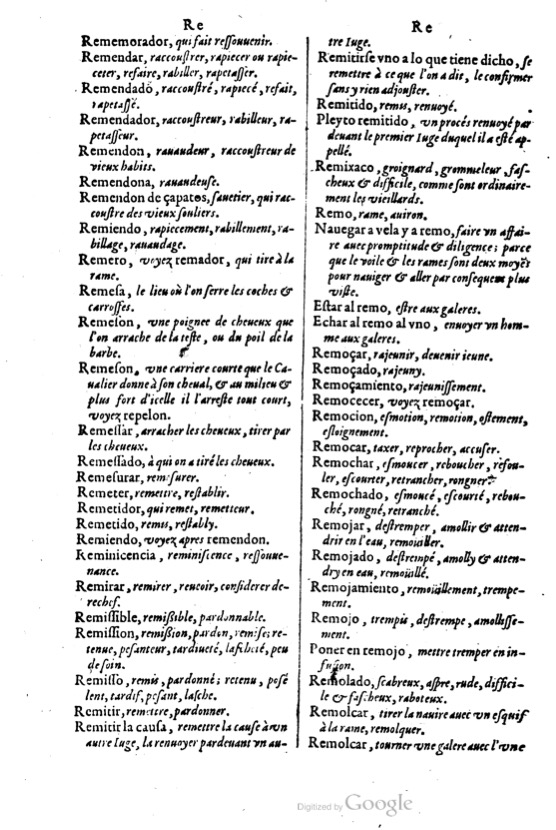 Re
Rememorador, qui fait reſſouuenir.
Remendar, raccouſtrer, rapiecer ou rapie-
ceter, refaire, rabiller, rapetaſſer.
Remendado, raccouſtré, rapiecé, refait,
rapetaſſé.
Remendador, raccouſtreur, rabilleur, ra-
petaſſeur.
Remendon, rauaudeur, raccouſtreur de
vieux habits.
Remendona, rauaudeuſe.
Remendon de çapatos, ſauetier, qui rac-
couſtre des vieux ſouliers.
Remiendo, rapiecement, rabillement, ra-
billage, rauaudage.
Remero, voyez remador, qui tire à la
rame.
Remeſa, le lieu où l'on ſerre les coches &
carroſſes.
Remeſon, vne poignee de cheueux que
l'on arrache de la teſte, ou du poil de la
barbe.
Remeſon, vne carriere courte que le Ca-
ualier donne à ſon cheual, & au milieu &
plus fort d'icelle il l'arreſte tout court,
voyez repelon.
Remeſſar, arracher les cheueux, tirer par
les cheueux.
Remeſſado, à qui on a tiré les cheueux.
Remeſurar, remeſurer.
Remeter, remettre, reſtablir.
Remetidor, qui remet, remetteur.
Remetido, remis, reſtably.
Remiendo, voyez apres remendon.
Reminicencia, reminiſcence, reſſouue-
nance.
Remirar, remirer, reuoir, conſiderer de-
rechef.
Remiſſible, remißible, pardonnable.
Remiſſion, remißion, pardon, remiſe; re-
tenue, peſanteur, tardiueté, laſcheté, peu
de ſoin.
Remiſſo, remis, pardonné; retenu, poſé
lent, tardif, peſant, laſche.
Remitir, remettre, pardonner.
Remitir la cauſa, remettre la cauſe à vn
autre Iuge, la renuoyer pardeuant vn au-
Re
tre Iuge.
Remitirſe vno a lo que tiene dicho, ſe
remettre à ce que l'on a dit, le confirmer
ſans y rien adiouſter.
Remitido, remis, renuoyé.
Pleyto remitido, vn procés renuoyé par
deuant le premier Iuge duquel il a eſté ap-
pellé.
Remixaco, groignard, grommeleur, faſ-
cheux & difficile, comme ſont ordinaire-
ment les vieillards.
Remo, rame, auiron.
Nauegar a vela y a remo, faire vn affai-
re auec promptitude & diligence; parce
que le voile & les rames ſont deux moyẽs
pour nauiger & aller par conſequent plus
viſte.
Eſtar al remo, eſtre aux galeres.
Echar al remo al vno, enuoyer vn hom-
me aux galeres.
Remoçar, rajeunir, deuenir ieune.
Remoçado, rajeuny.
Remoçamiento, rajeuniſſement.
Remocecer, voyez remoçar.
Remocion, eſmotion, remotion, oſtement,
eſloignement.
Remocar, taxer, reprocher, accuſer.
Remochar, eſmoucer, reboucher, refou-
ler, eſcourter, retrancher, rongner.
Remochado, eſmoucé, eſcourté, rebou-
ché, rongné, retranché.
Remojar, deſtremper, amollir & atten-
drir en l'eau, remoüiller.
Remojado, deſtrempé, amolly & atten-
dry en eau, remoüillé.
Remojamiento, remoüillement, trempe-
ment.
Remojo, trempis, deſtrempe, amolliſſe-
ment.
Poner en remojo, mettre tremper en in-
fuſion.
Remolado, ſcabreux, aſpre, rude, diffici-
le & faſcheux, raboteux.
Remolcar, tirer la nauire auec vn eſquif
à la rame, remolquer.
Remolcar, tourner vne galere auec l'vne
Digitized by Google